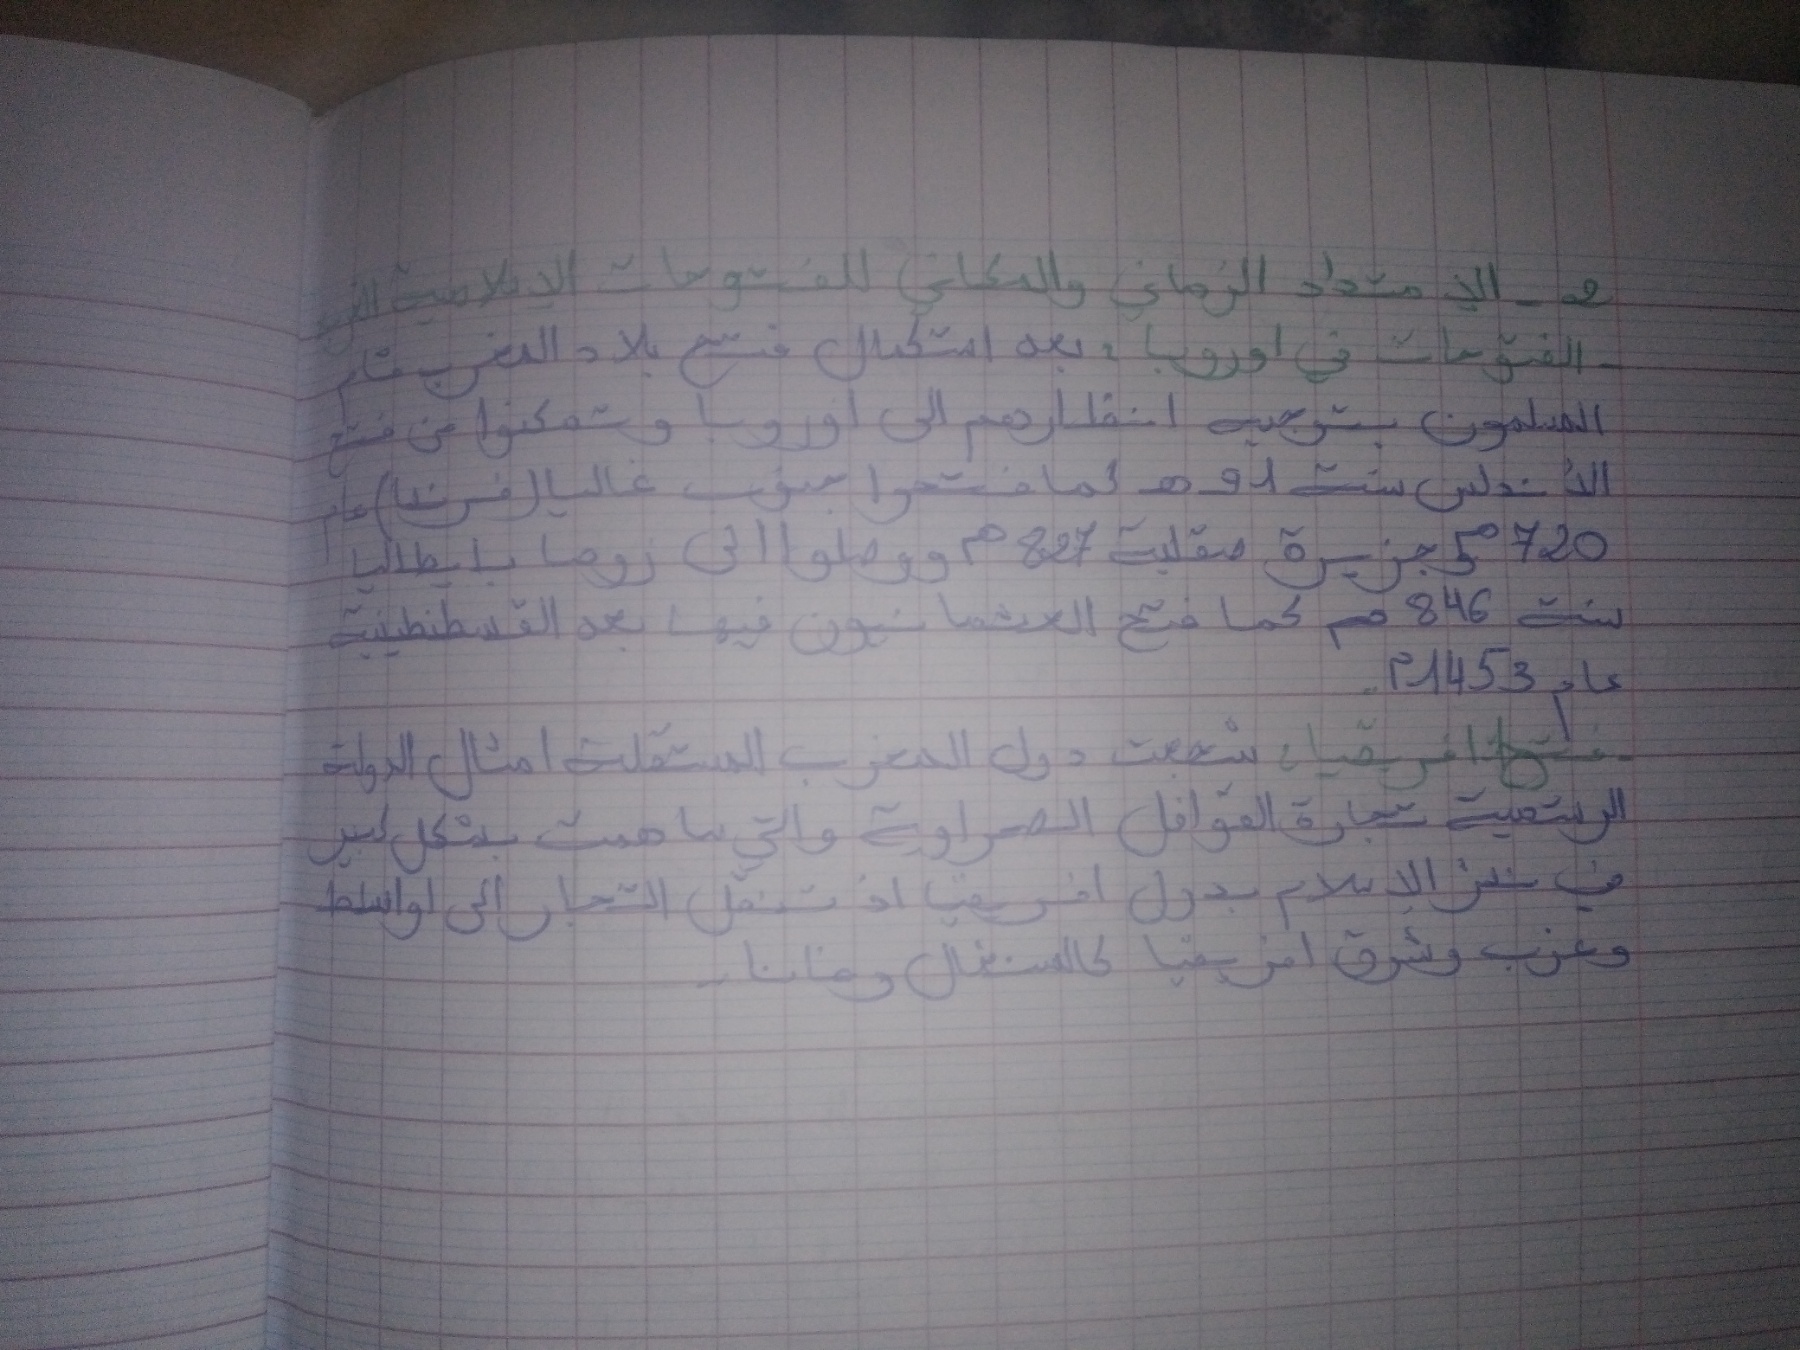 2 - الإمتداد الزماني والمكاني للفتوحات الإسلامية
- الفتوحات في اوروبا : بعد استكمال فتح بلاد المغرب قام
المسلمون بتوجيه انظارهم الى اوروبا وتمكنوا من فتح
الأندلس سنة 91 هـ كما فتحوا جنوب غاليا (فرنسا) عام
720 م جزيرة صقلية 827 م ووصلوا الى روما بايطاليا
سنة 846 م كما فتح العثمانيون فيها بعد القسطنطينية
عام 1453 م.
- فتح افريقيا : شجعت دول المغرب المستقلة امثال الدولة
الرستمية تجارة القوافل الصحراوية والتي ساهمت بشكل كبير
في نشر الإسلام بدول افريقيا اذ تنقل التجار الى اواسط
وغرب وشرق افريقيا كالسنغال وغانا.